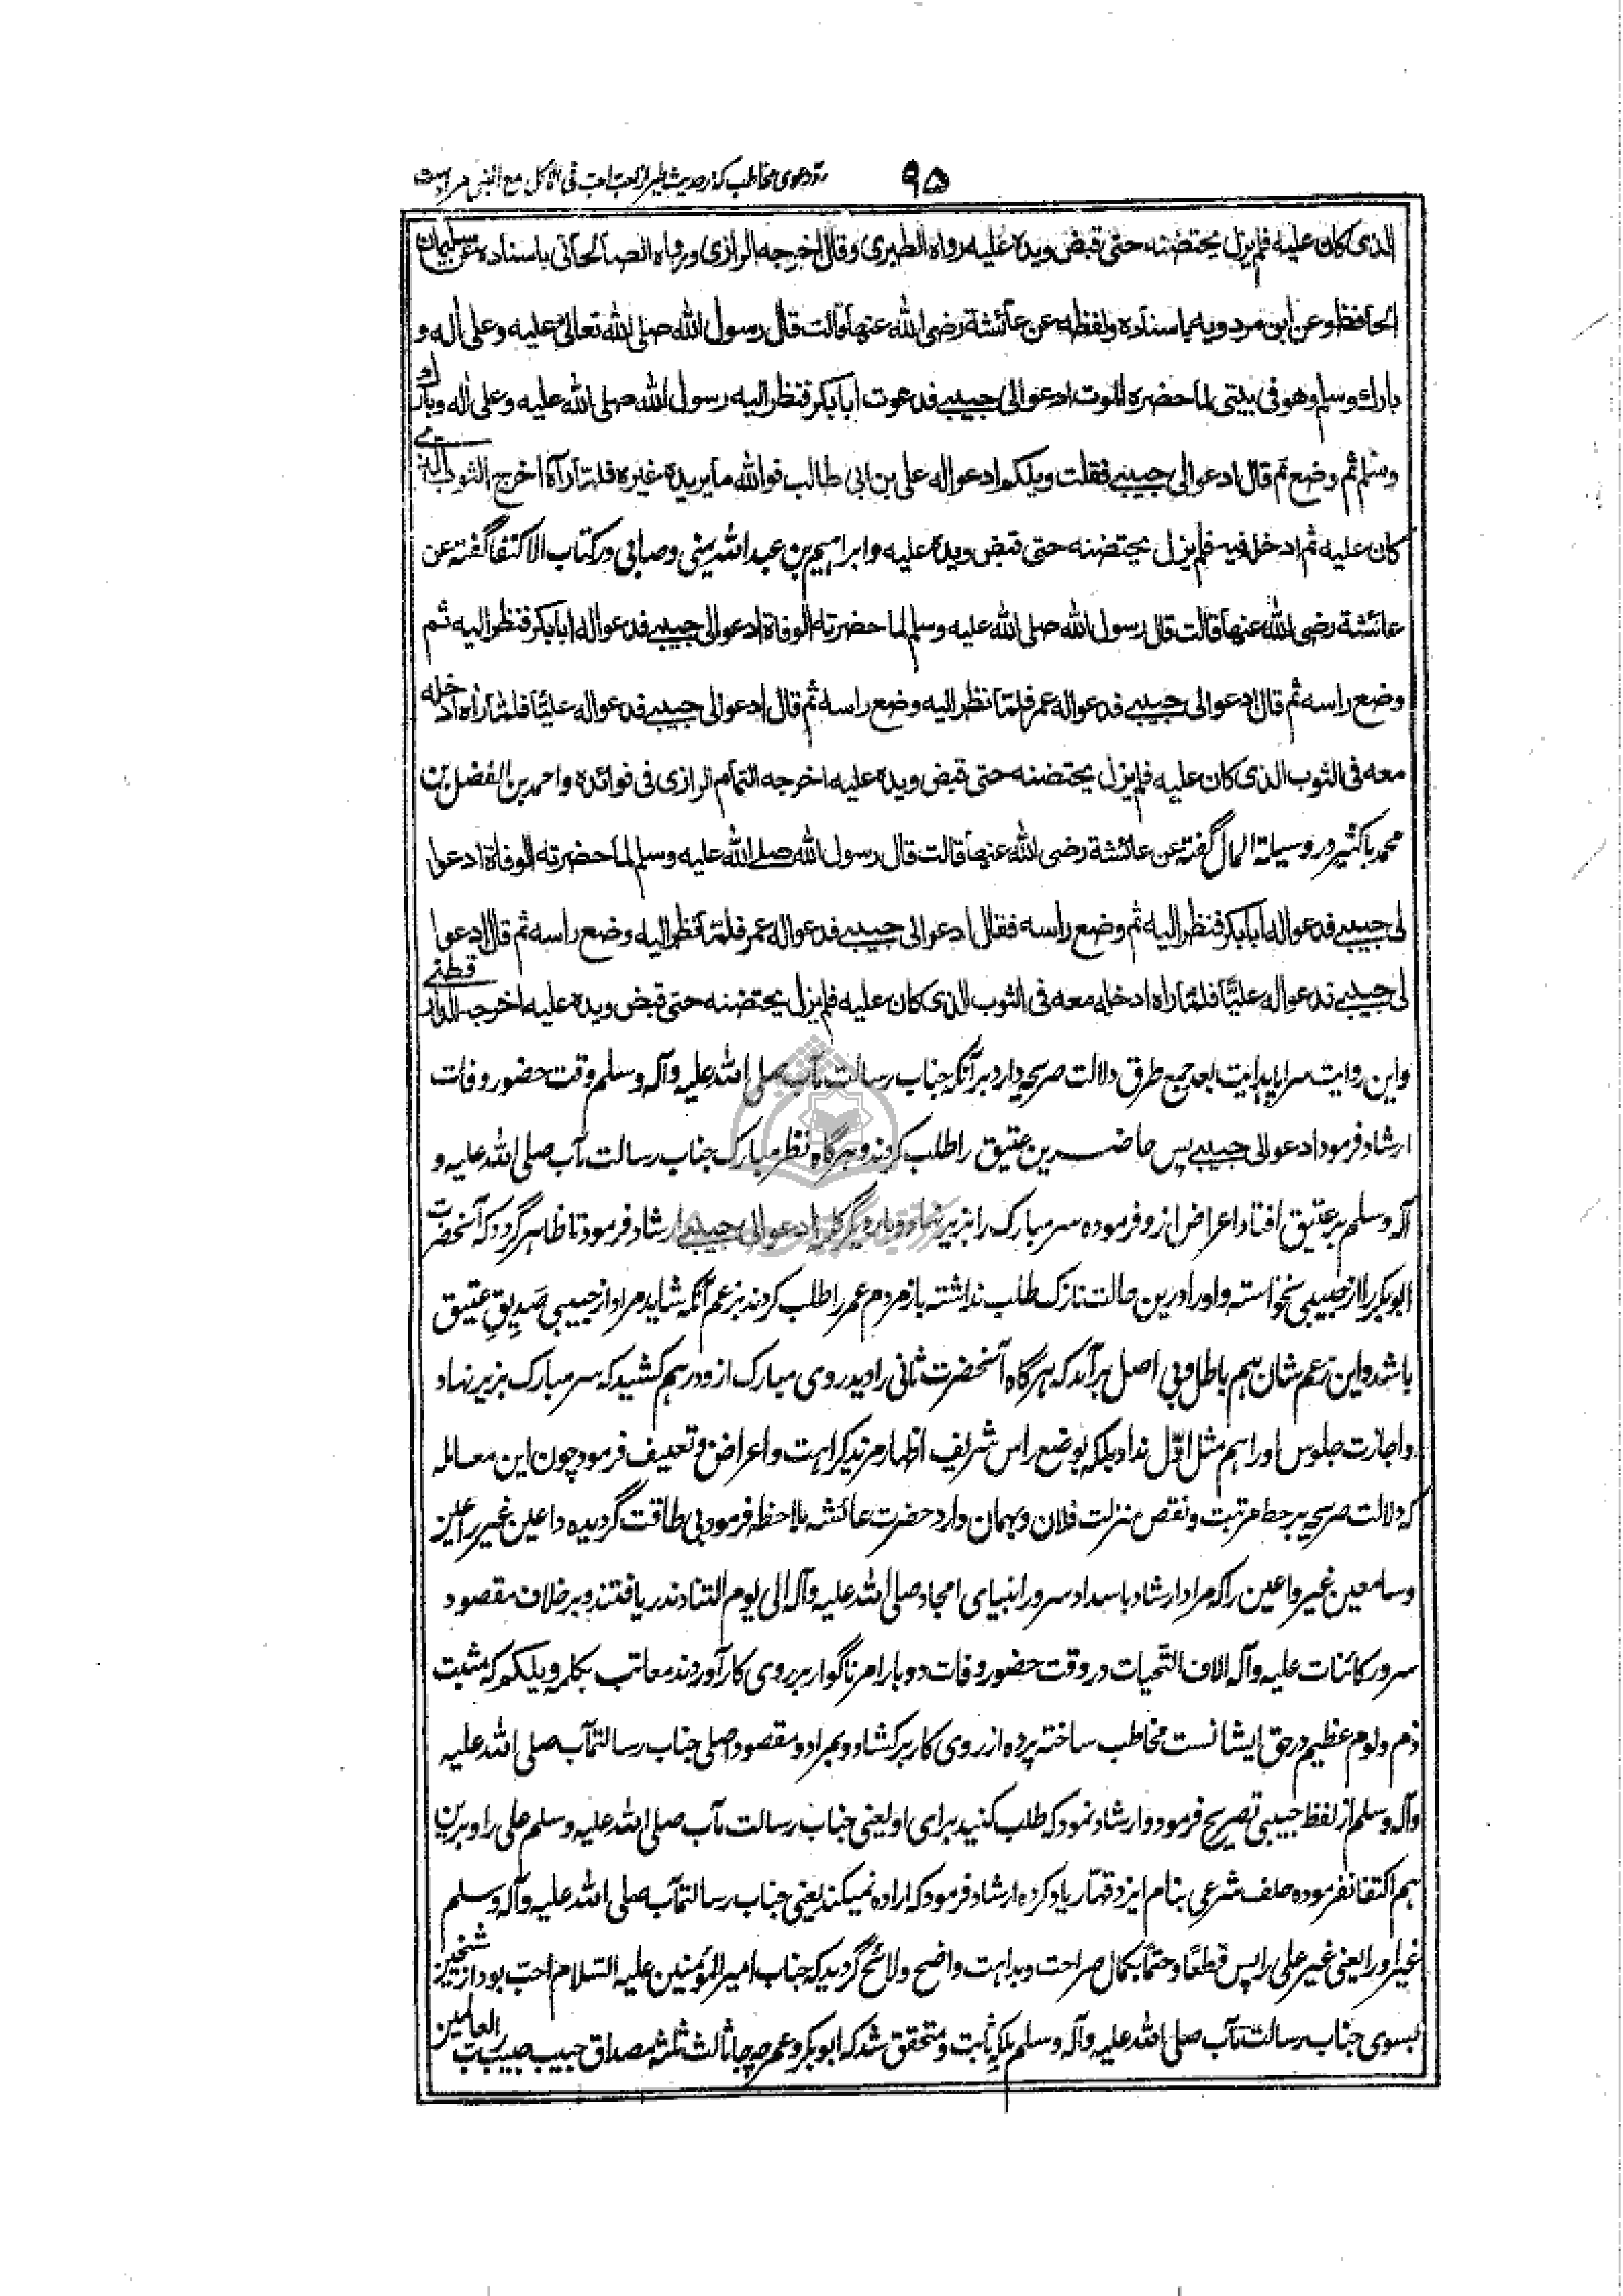 ۹۵ رد دعوی مخاطب که از حدیث طیر احب احب فی الاکل مع النبی مراد است
الذی کان علیه فلم یزل یحتضنه حتی قبض ویده علیه رواه الطبری وقال اخرجه الرازی ورواه الصالحانی باسناده عن سلیمان
الحافظ وعن ابن مردویه باسناده ولفظه عن عائشة رضی الله عنها قالت قال رسول الله صلی الله تعالی علیه وعلی آله و
بارك وسلم وهو فی بیتی لما حضره الموت ادعوا لی حبیبی فدعوت ابا بکر فنظر الیه رسول الله صلی الله علیه وعلی آله وبارك
وسلم ثم وضع ثم قال ادعوا لی حبیبی فقلت ویلکم ادعوا له علی بن ابی طالب فوالله ما یرید غیره فلما رآه اخرج الثوب الذی
کان علیه ثم ادخل فیه فلم یزل یحتضنه حتی قبض ویده علیه وابراهیم بن عبد الله یمنی وصابی در کتاب الاکتفا گفته عن
عائشة رضی الله عنها قالت قال رسول الله صلی الله علیه وسلم لما حضرته الوفاة ادعوا لی حبیبی فدعوا له ابا بکر فنظر الیه ثم
وضع راسه ثم قال ادعوا لی حبیبی فدعوا له عمر فلما نظر الیه وضع راسه ثم قال ادعوا لی حبیبی فدعوا له علیا فلما رآه ادخله
معه فی الثوب الذی کان علیه فلم یزل یحتضنه حتی قبض ویده علیه اخرجه التمام الرازی فی فوائده واحمد بن الفضل بن
محمد باکثیر در وسیلة المال گفته عن عائشة رضی الله عنها قالت قال رسول الله صلی الله علیه وسلم لما حضرته الوفاة ادعوا
لی حبیبی فدعوا له ابا بکر فنظر الیه ثم وضع راسه فقال ادعوا لی حبیبی فدعوا له عمر فلما نظر الیه وضع راسه ثم قال ادعوا
لی حبیبی فدعوا له علیا فلما راه ادخله معه فی الثوب الذی کان علیه فلم یزل یحتضنه حتی قبض ویده علیه اخرجه الدارقطنی
واین روایت سراپا هدایت بعد جمع طرق دلالت صریحه دارد بر آنکه جناب رسالت مآب صلی الله علیه وآله وسلم وقت حضور وفات
ارشاد فرمود ادعوا لی حبیبی پس حاضرین عتیق را طلب کردند و هرگاه نظر مبارک جناب رسالت مآب صلی الله علیه و
آله وسلم بر عتیق افتاد اعراض ازو فرموده سر مبارک را بزیر نهاد و بار دیگر کلمه ادعوا لی حبیبی ارشاد فرمود تا ظاهر گردد که آنحضرت
ابوبکر را از حبیبی نخواسته و او را درین حالت نازک طلب نداشته باز مردم عمر را طلب کردند بزعم آنکه شاید مراد از حبیبی صدیق عتیق
باشد و این زعم شان هم باطل و بی اصل برآمد که هرگاه آنحضرت ثانی را دید روی مبارک ازو درهم کشید که سر مبارک بزیر نهاد
و اجازت جلوس او را هم مثل اول نداد بلکه بوضع راس شریف اظهار مزید کراهت و اعراض و تعییف فرمود چون این معامله
که دلالت صریحه بر حط مرتبت و نقص منزلت فلان و بهمان دارد حضرت عائشه ملاحظه فرمود بی طاقت گردیده داعین غیر راعین
و سامعین غیر واعین را که مراد ارشاد باسداد سرور انبیای امجاد صلی الله علیه وآله الی یوم التناد ندریافتند و برخلاف مقصود
سرور کائنات علیه وآله الاف التحیات در وقت حضور وفات دو بار امر ناگوار بر روی کار آوردند معاتب بکلمه ویلکم که مثبت
ذم و لوم عظیم در حق ایشانست مخاطب ساخته پرده از روی کار برکشاد و بمراد و مقصود اصلی جناب رسالتمآب صلی الله علیه
وآله وسلم از لفظ حبیبی تصریح فرمود و ارشاد نمود که طلب کنید برای او یعنی جناب رسالت مآب صلی الله علیه وسلم علی را و برین
هم اکتفا نفرموده حلف شرعی بنام ایزد قهار یاد کرده ارشاد فرمود که اراده نمیکند یعنی جناب رسالتمآب صلی الله علیه وآله وسلم
غیر او را یعنی غیر علی را پس قطعا و حتما بکمال صراحت و بداهت واضح و لائح گردید که جناب امیر المؤمنین علیه السلام احب بود از شیخین
بسوی جناب رسالت مآب صلی الله علیه وآله وسلم بلکه ثابت و متحقق شد که ابوبکر و عمر چه جا ثالث ثلثه مصداق حبیب حبیب رب العالمین